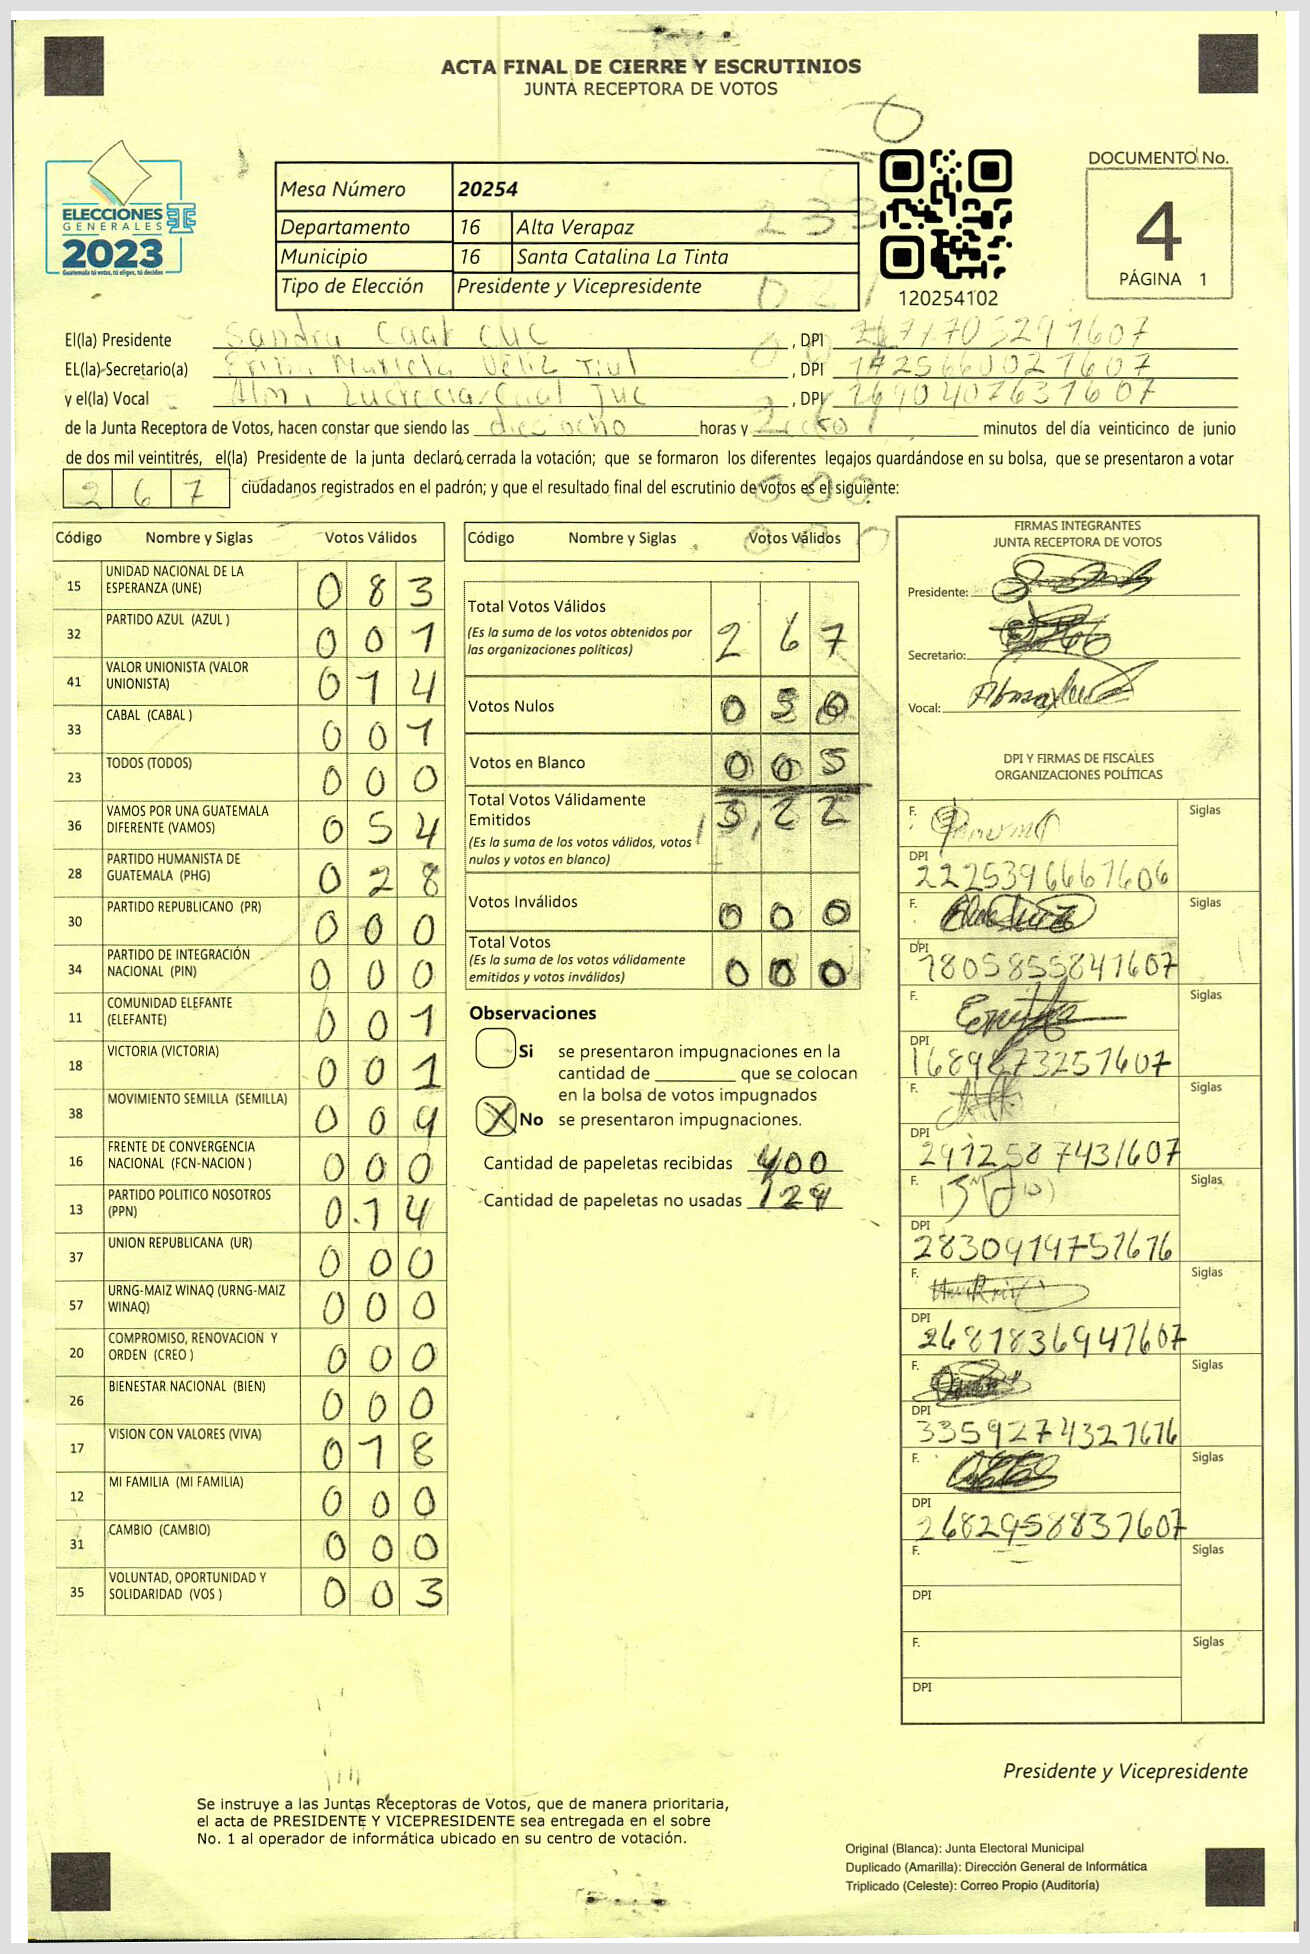 ACTA FINAL DE CIERRE Y ESCRUTINIOS
JUNTA RECEPTORA DE VOTOS
ELECCIONES
GENERALES
2023
Guatemala tú votas, tú eliges, tú decides
Mesa Número 20254
Departamento 16 Alta Verapaz
Municipio 16 Santa Catalina La Tinta
Tipo de Elección Presidente y Vicepresidente
120254102
DOCUMENTO No.
4
PÁGINA 1
El(la) Presidente Sandra Caal CUC , DPI
EL(la) Secretario(a) Mariela Véliz Tiul , DPI
y el(la) Vocal Lucrecia Caal , DPI
de la Junta Receptora de Votos, hacen constar que siendo las dieciocho horas y minutos del día veinticinco de junio
de dos mil veintitrés, el(la) Presidente de la junta declaró cerrada la votación; que se formaron los diferentes legajos guardándose en su bolsa, que se presentaron a votar
267 ciudadanos registrados en el padrón; y que el resultado final del escrutinio de votos es el siguiente:
Código Nombre y Siglas Votos Válidos
15 UNIDAD NACIONAL DE LA ESPERANZA (UNE) 083
32 PARTIDO AZUL (AZUL ) 001
41 VALOR UNIONISTA (VALOR UNIONISTA) 014
33 CABAL (CABAL ) 001
23 TODOS (TODOS) 000
36 VAMOS POR UNA GUATEMALA DIFERENTE (VAMOS) 054
28 PARTIDO HUMANISTA DE GUATEMALA (PHG) 028
30 PARTIDO REPUBLICANO (PR) 000
34 PARTIDO DE INTEGRACIÓN NACIONAL (PIN) 000
11 COMUNIDAD ELEFANTE (ELEFANTE) 001
18 VICTORIA (VICTORIA) 001
38 MOVIMIENTO SEMILLA (SEMILLA) 009
16 FRENTE DE CONVERGENCIA NACIONAL (FCN-NACION ) 000
13 PARTIDO POLITICO NOSOTROS (PPN) 014
37 UNION REPUBLICANA (UR) 000
57 URNG-MAIZ WINAQ (URNG-MAIZ WINAQ) 000
20 COMPROMISO, RENOVACION Y ORDEN (CREO ) 000
26 BIENESTAR NACIONAL (BIEN) 000
17 VISION CON VALORES (VIVA) 018
12 MI FAMILIA (MI FAMILIA) 000
31 CAMBIO (CAMBIO) 000
35 VOLUNTAD, OPORTUNIDAD Y SOLIDARIDAD (VOS ) 003
Código Nombre y Siglas Votos Válidos
Total Votos Válidos 267
(Es la suma de los votos obtenidos por
las organizaciones políticas)
Votos Nulos 050
Votos en Blanco 005
Total Votos Válidamente
Emitidos 322
(Es la suma de los votos válidos, votos
nulos y votos en blanco)
Votos Inválidos 000
Total Votos
(Es la suma de los votos válidamente
emitidos y votos inválidos) 000
Observaciones
Si se presentaron impugnaciones en la
cantidad de ________ que se colocan
en la bolsa de votos impugnados
X No se presentaron impugnaciones.
Cantidad de papeletas recibidas 400
Cantidad de papeletas no usadas 129
FIRMAS INTEGRANTES
JUNTA RECEPTORA DE VOTOS
Presidente:
Secretario:
Vocal:
DPI Y FIRMAS DE FISCALES
ORGANIZACIONES POLÍTICAS
F. Siglas
DPI 2225396661606
F. Siglas
DPI 1805855841607
F. Siglas
DPI
F. Siglas
DPI 2912587431607
F. Siglas
DPI
F. Siglas
DPI 2681836941607
F. Siglas
DPI 3359274321616
F. Siglas
DPI 2682958831607
F. Siglas
DPI
F. Siglas
DPI
Presidente y Vicepresidente
Se instruye a las Juntas Receptoras de Votos, que de manera prioritaria,
el acta de PRESIDENTE Y VICEPRESIDENTE sea entregada en el sobre
No. 1 al operador de informática ubicado en su centro de votación.
Original (Blanca): Junta Electoral Municipal
Duplicado (Amarilla): Dirección General de Informática
Triplicado (Celeste): Correo Propio (Auditoría)